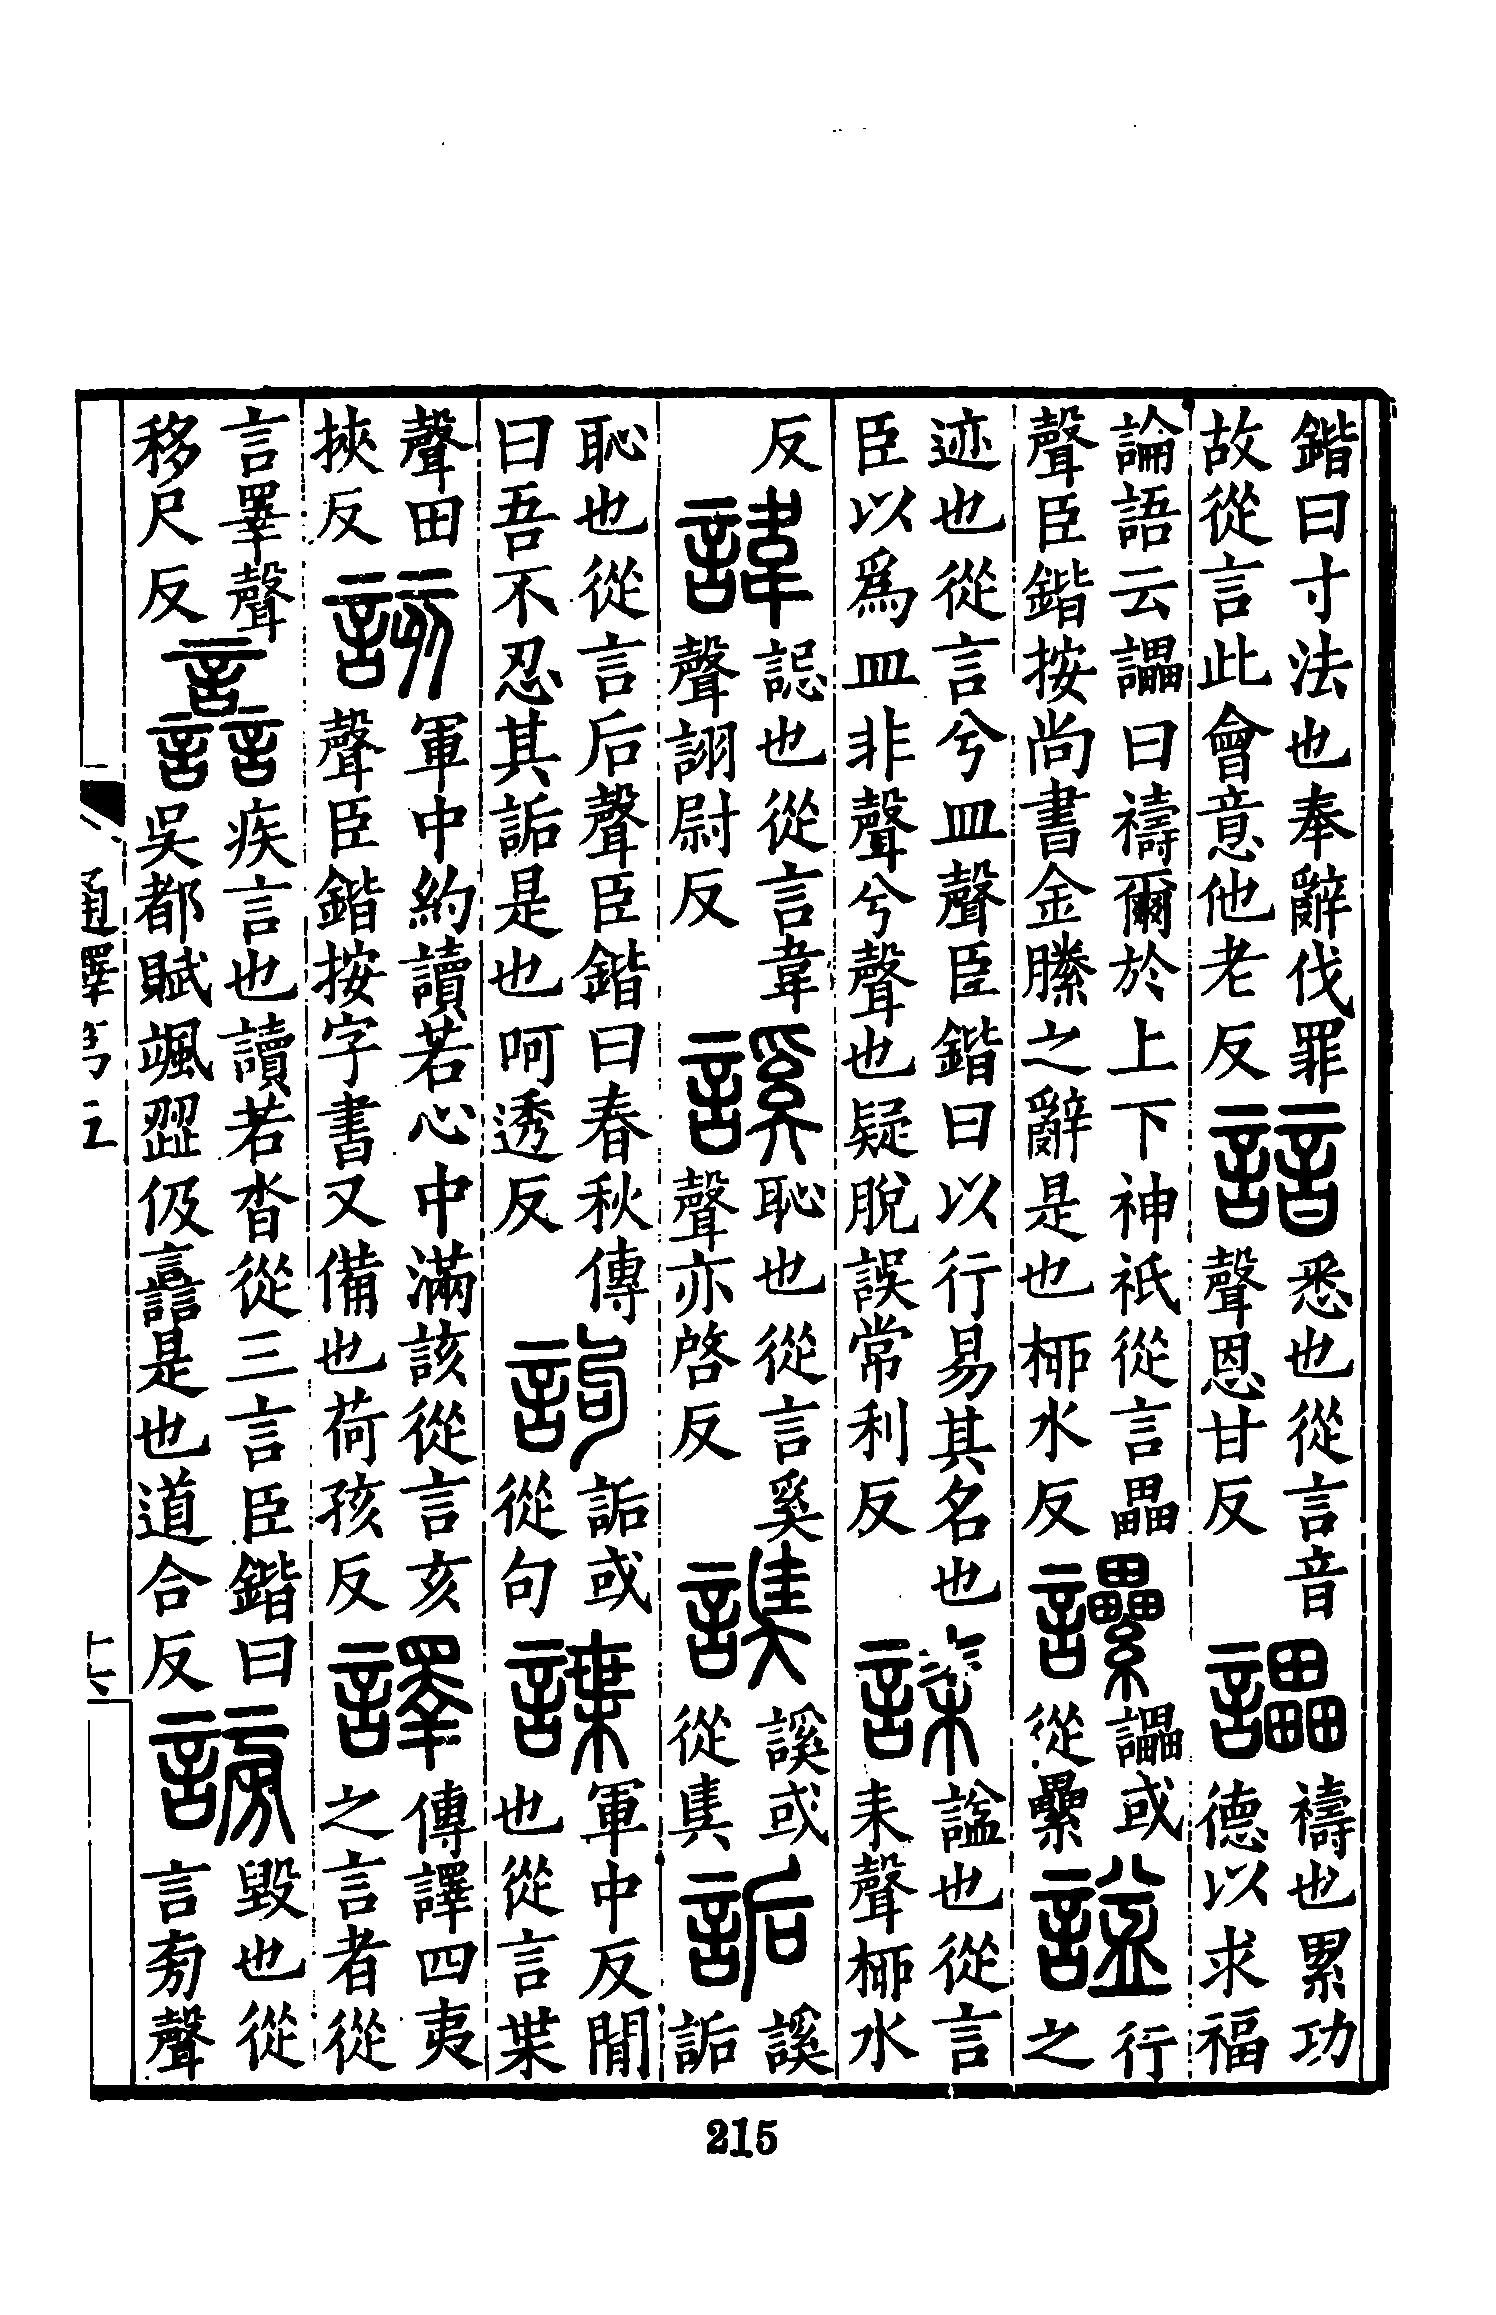 鍇曰寸法也奉辭伐罪故從言此會意他老反諳悉也從言音聲恩甘反讄禱也累功德以求福
論語云讄曰禱爾於上下神祇從言畾聲臣鍇按尚書金縢之辭是也柳水反𧮢讄或從纍謚行之
迹也從言兮皿聲臣鍇曰以行易其名也臣以爲皿非聲兮聲也疑脫誤常利反誄謚也從言耒聲柳水
反諱誋也從言韋聲詡尉反謑恥也從言奚聲亦啓反謑或從詬謑詬
恥也從言后聲臣鍇曰春秋傳曰吾不忍其詬是也呵透反訽詬或從句諜軍中反閒也從言枼
聲田挾反該軍中約讀若心中滿該從言亥聲臣鍇按字書又備也荷孩反譯傳譯四夷之言者從
言睪聲移尺反譶疾言也讀若沓從三言臣鍇曰吳都賦颯澀伋譶是也道合反謗毀也從言旁聲
通釋
215